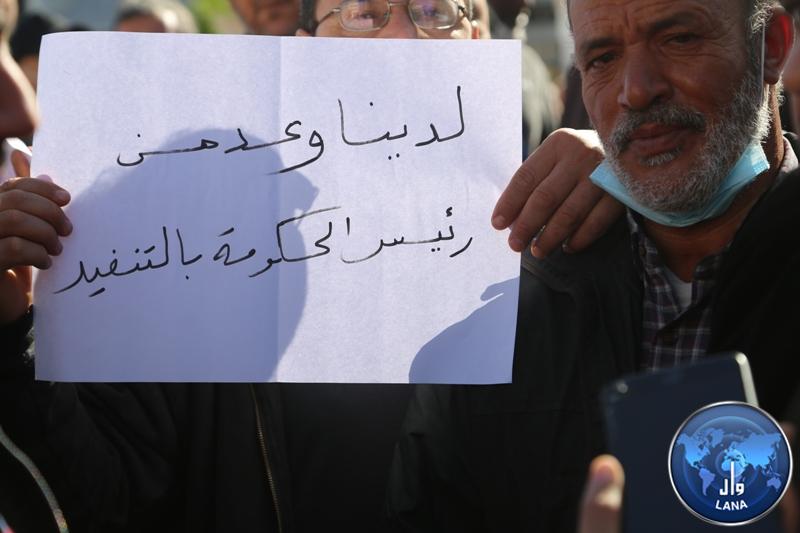 لدينا وعد من
رئيس الحكومة بالتنفيد
وال
LANA